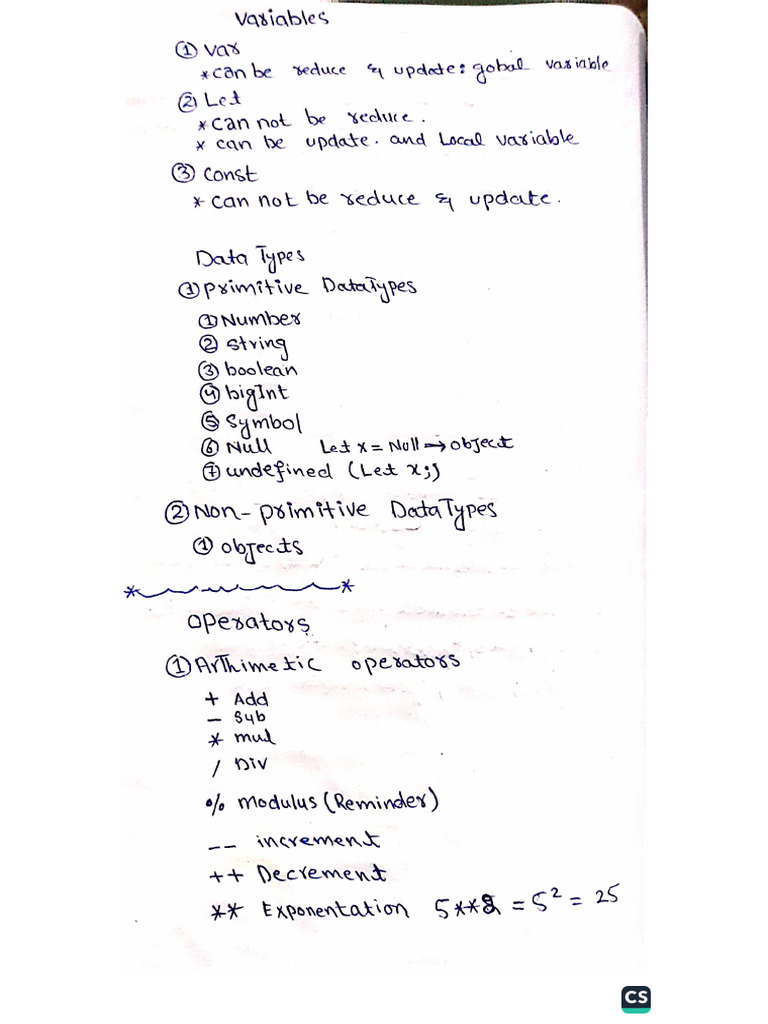 Variables
① var
* can be reduce & update: gobal variable
② Let
* can not be reduce.
* can be update. and Local variable
③ const
* can not be reduce & update.
Data Types
① primitive DataTypes
① Number
② string
③ boolean
④ bigInt
⑤ Symbol
⑥ Null Let x = Null → object
⑦ undefined (Let x;)
② Non-primitive DataTypes
① objects
*~~~~~*
Operators
① Arthimetic operators
+ Add
- Sub
* mul
/ Div
% modulus (Reminder)
-- increment
++ Decrement
** Exponentation 5**2 = 5² = 25
CS